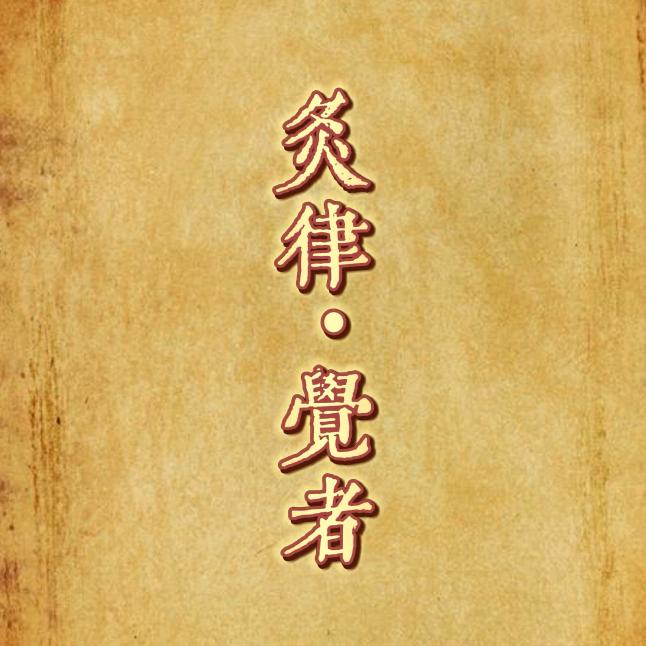 灸律·覺者